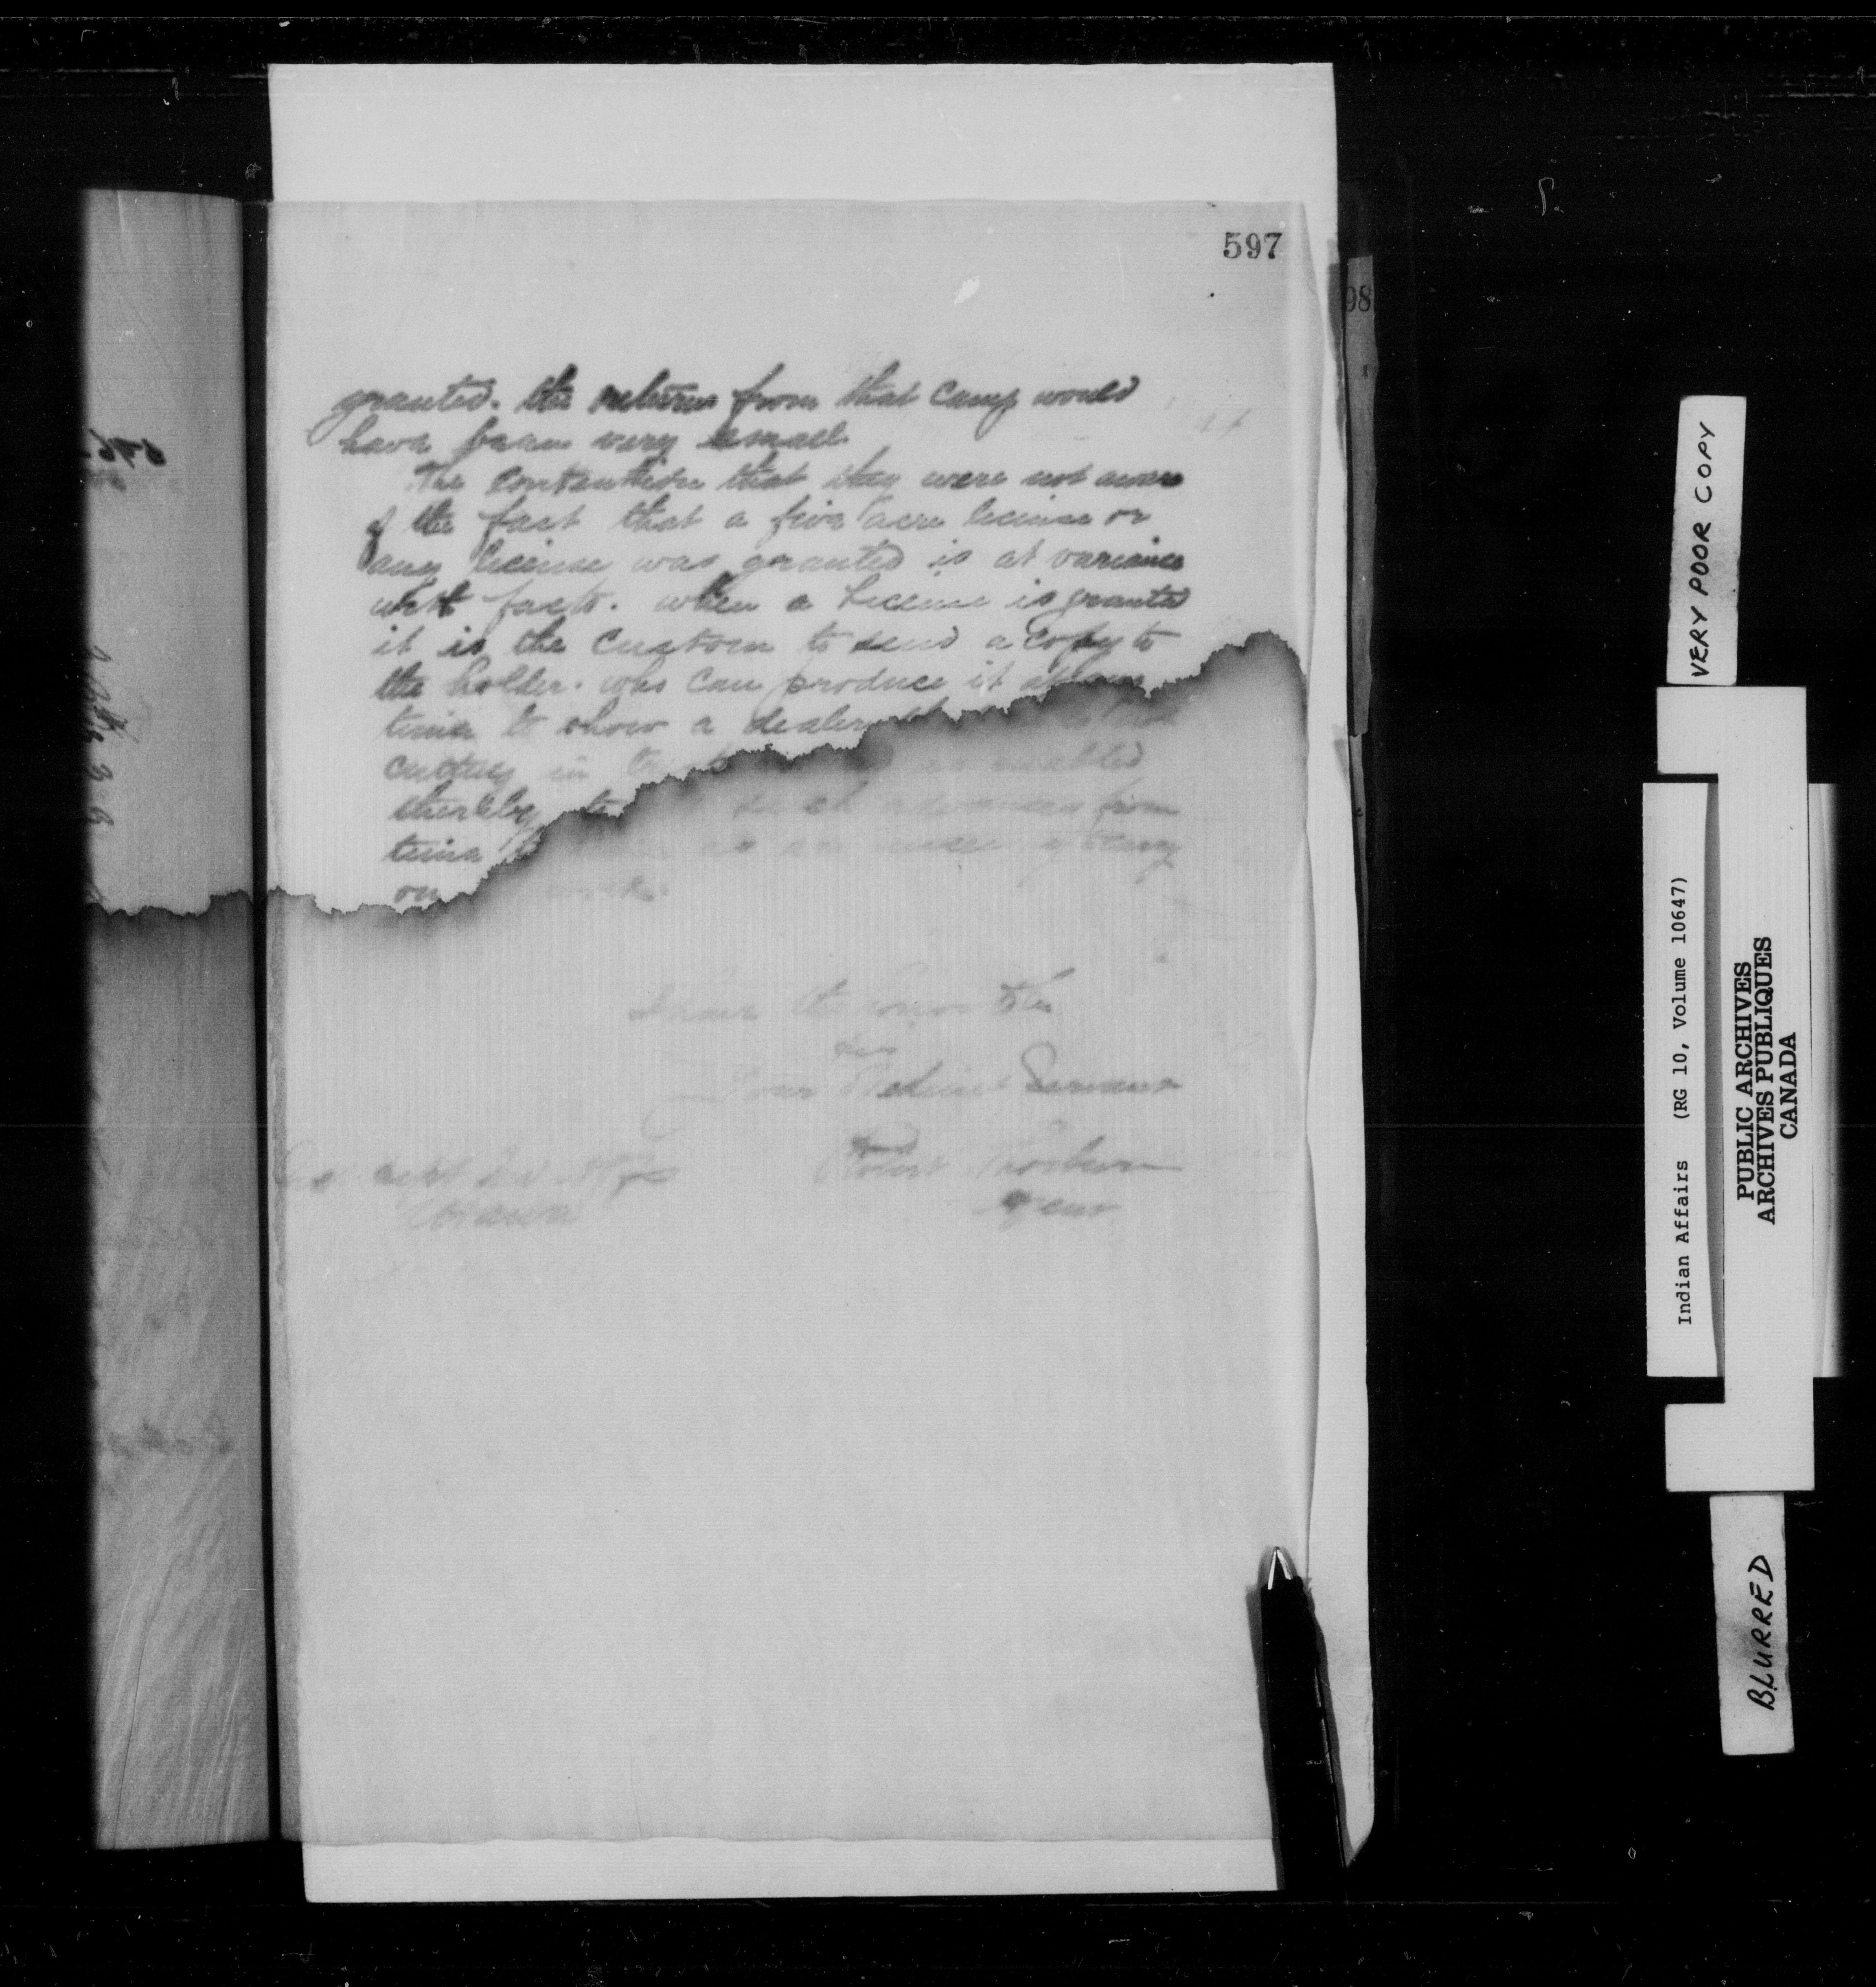 597
98
granted. the returns from that Camp would
have been very small.
The Contention that they were not aware
of the fact that a five acre license or
any license was granted is at variance
with facts. when a License is granted
it is the Custom to send a copy to
the holder. who can produce it at any
time to show a dealer
cutting in enabled
thereby to such advances from
time as are carry
on work.
I have the honor to be
Sir
Your Obedient Servant
Robert Thorburn
Agent
Ottawa
VERY POOR COPY
Indian Affairs (RG 10, Volume 10647)
PUBLIC ARCHIVES
ARCHIVES PUBLIQUES
CANADA
BLURRED